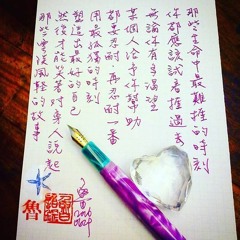 那些生命中最難推的時刻
你都應該試着推過去
無論你有多渴望
某個人給予你幫助
都要忍耐 再忍耐一番
用最孤獨的時刻
塑造出最好的自己
然後才能笑着對旁人說起
那些雲淡風輕的故事
魯